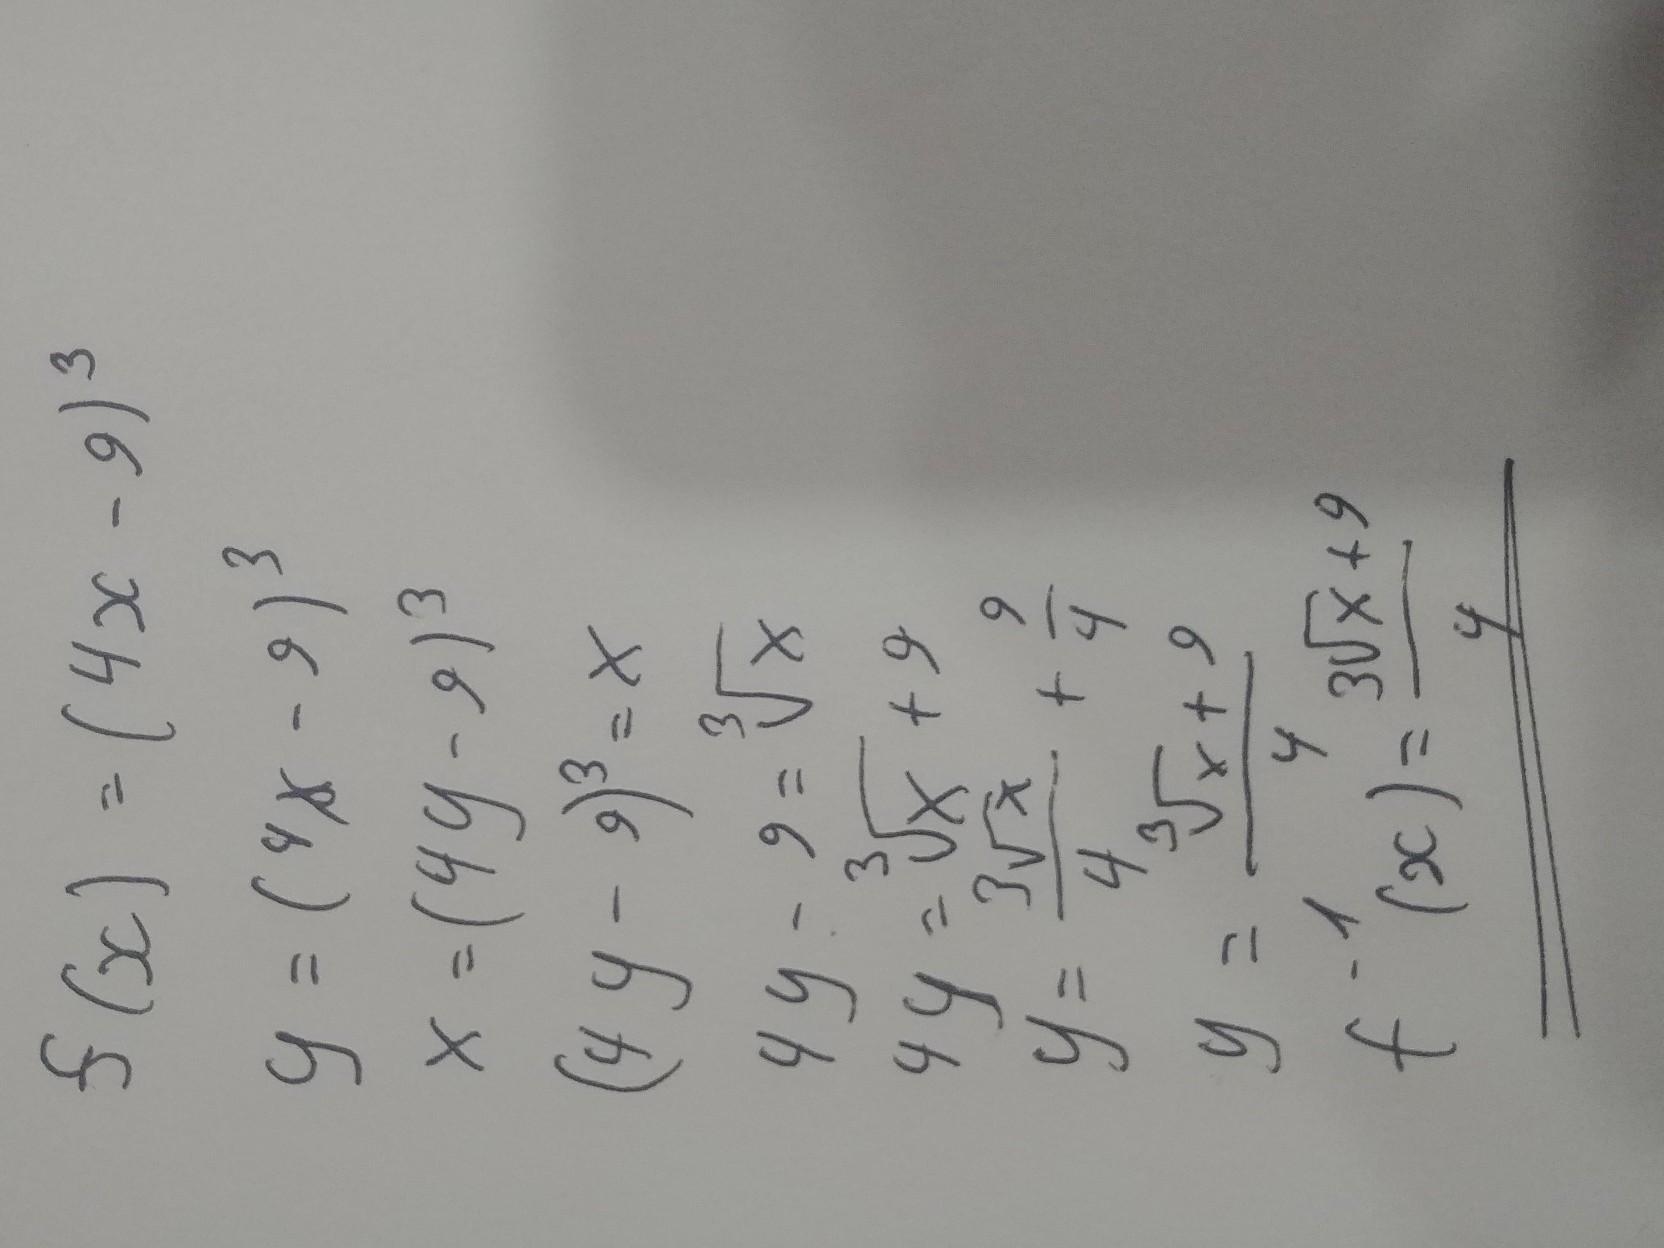 f(x) = (4x - 9)³
y = (4x - 9)³
x = (4y - 9)³
(4y - 9)³ = x
4y - 9 = ³√x
4y = ³√x + 9
y = ³√x/4 + 9/4
y = (³√x + 9)/4
f⁻¹(x) = (³√x + 9)/4